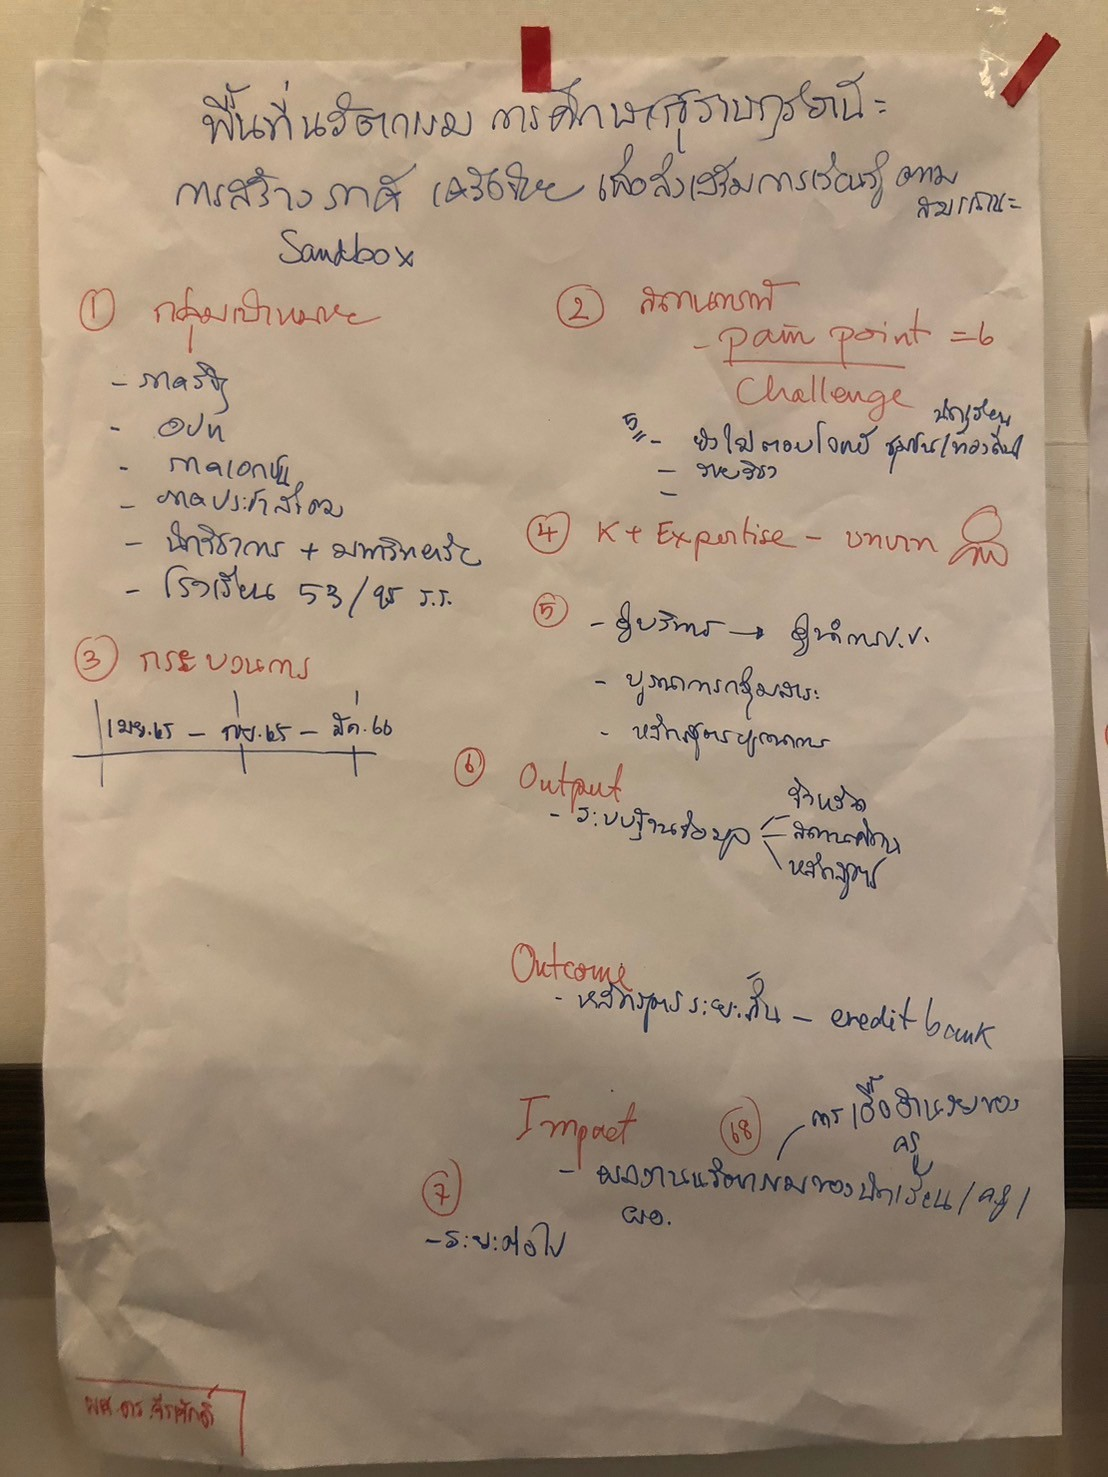 พื้นที่นวัตกรรม การศึกษา
การสร้าง ภาคี เครือข่าย เพื่อส่งเสริมการเรียนรู้ ตาม
สมรรถนะ
Sandbox
① กลุ่มเป้าหมาย
- ภาครัฐ
- อปท
- ภาคเอกชน
- ภาคประชาสังคม
- นักวิชาการ + มหาวิทยาลัย
- โรงเรียน 53/ ร.ร.
③ กระบวนการ
เมย.65 - กย.65 - มีค.66
② สถานการณ์
- pain point = 6
Challenge
นักเรียน
5 - ยังไม่ตอบโจทย์ ชุมชน/ท้องถิ่น
- รายวิชา
-
④ K + Expertise - บทบาท
⑤ - ผู้บริหาร → ผู้นำการป.ป.
- บูรณาการกลุ่มสาระ
- หลักสูตรบูรณาการ
⑥ Output
- ระบบฐานข้อมูล
จังหวัด
สถานศึกษา
หลักสูตร
Outcome
- หลักสูตรระยะสั้น - credit bank
Impact
68
การเอื้ออำนวยของ
ครู
- ผลงานนวัตกรรมของนักเรียน / ครู /
ผอ.
⑦
- ระยะต่อไป
ผศ.ดร.